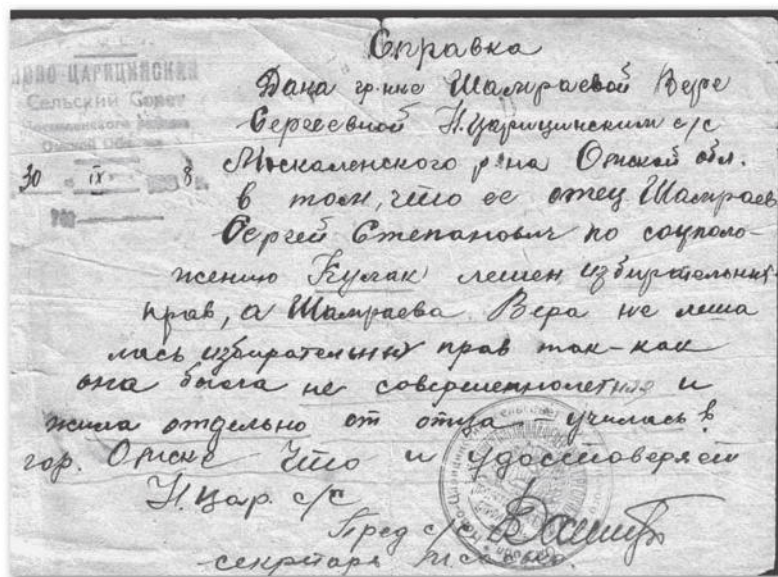 Справка
НОВО ЦАРИЦИНСКИЙ
Сельский Совет
Москаленского района
Омской Области
30 " IX 193 8
№
Дана гр-нке Шамраевой Вере
Сергеевной Н.Царицинским с/с
Москаленского р-на Омской обл.
в том, что ее отец Шамраев
Сергей Степанович по соцполо-
жению Кулак лешен избирательных
прав, а Шамраева Вера не лиша
лась избирательных прав так-как
она была не совершеннолетняя и
жила отдельно от отца училась в
гор. Омске Что и удостоверяет
Н.Цар. с/с
Пред с/с
секретарь